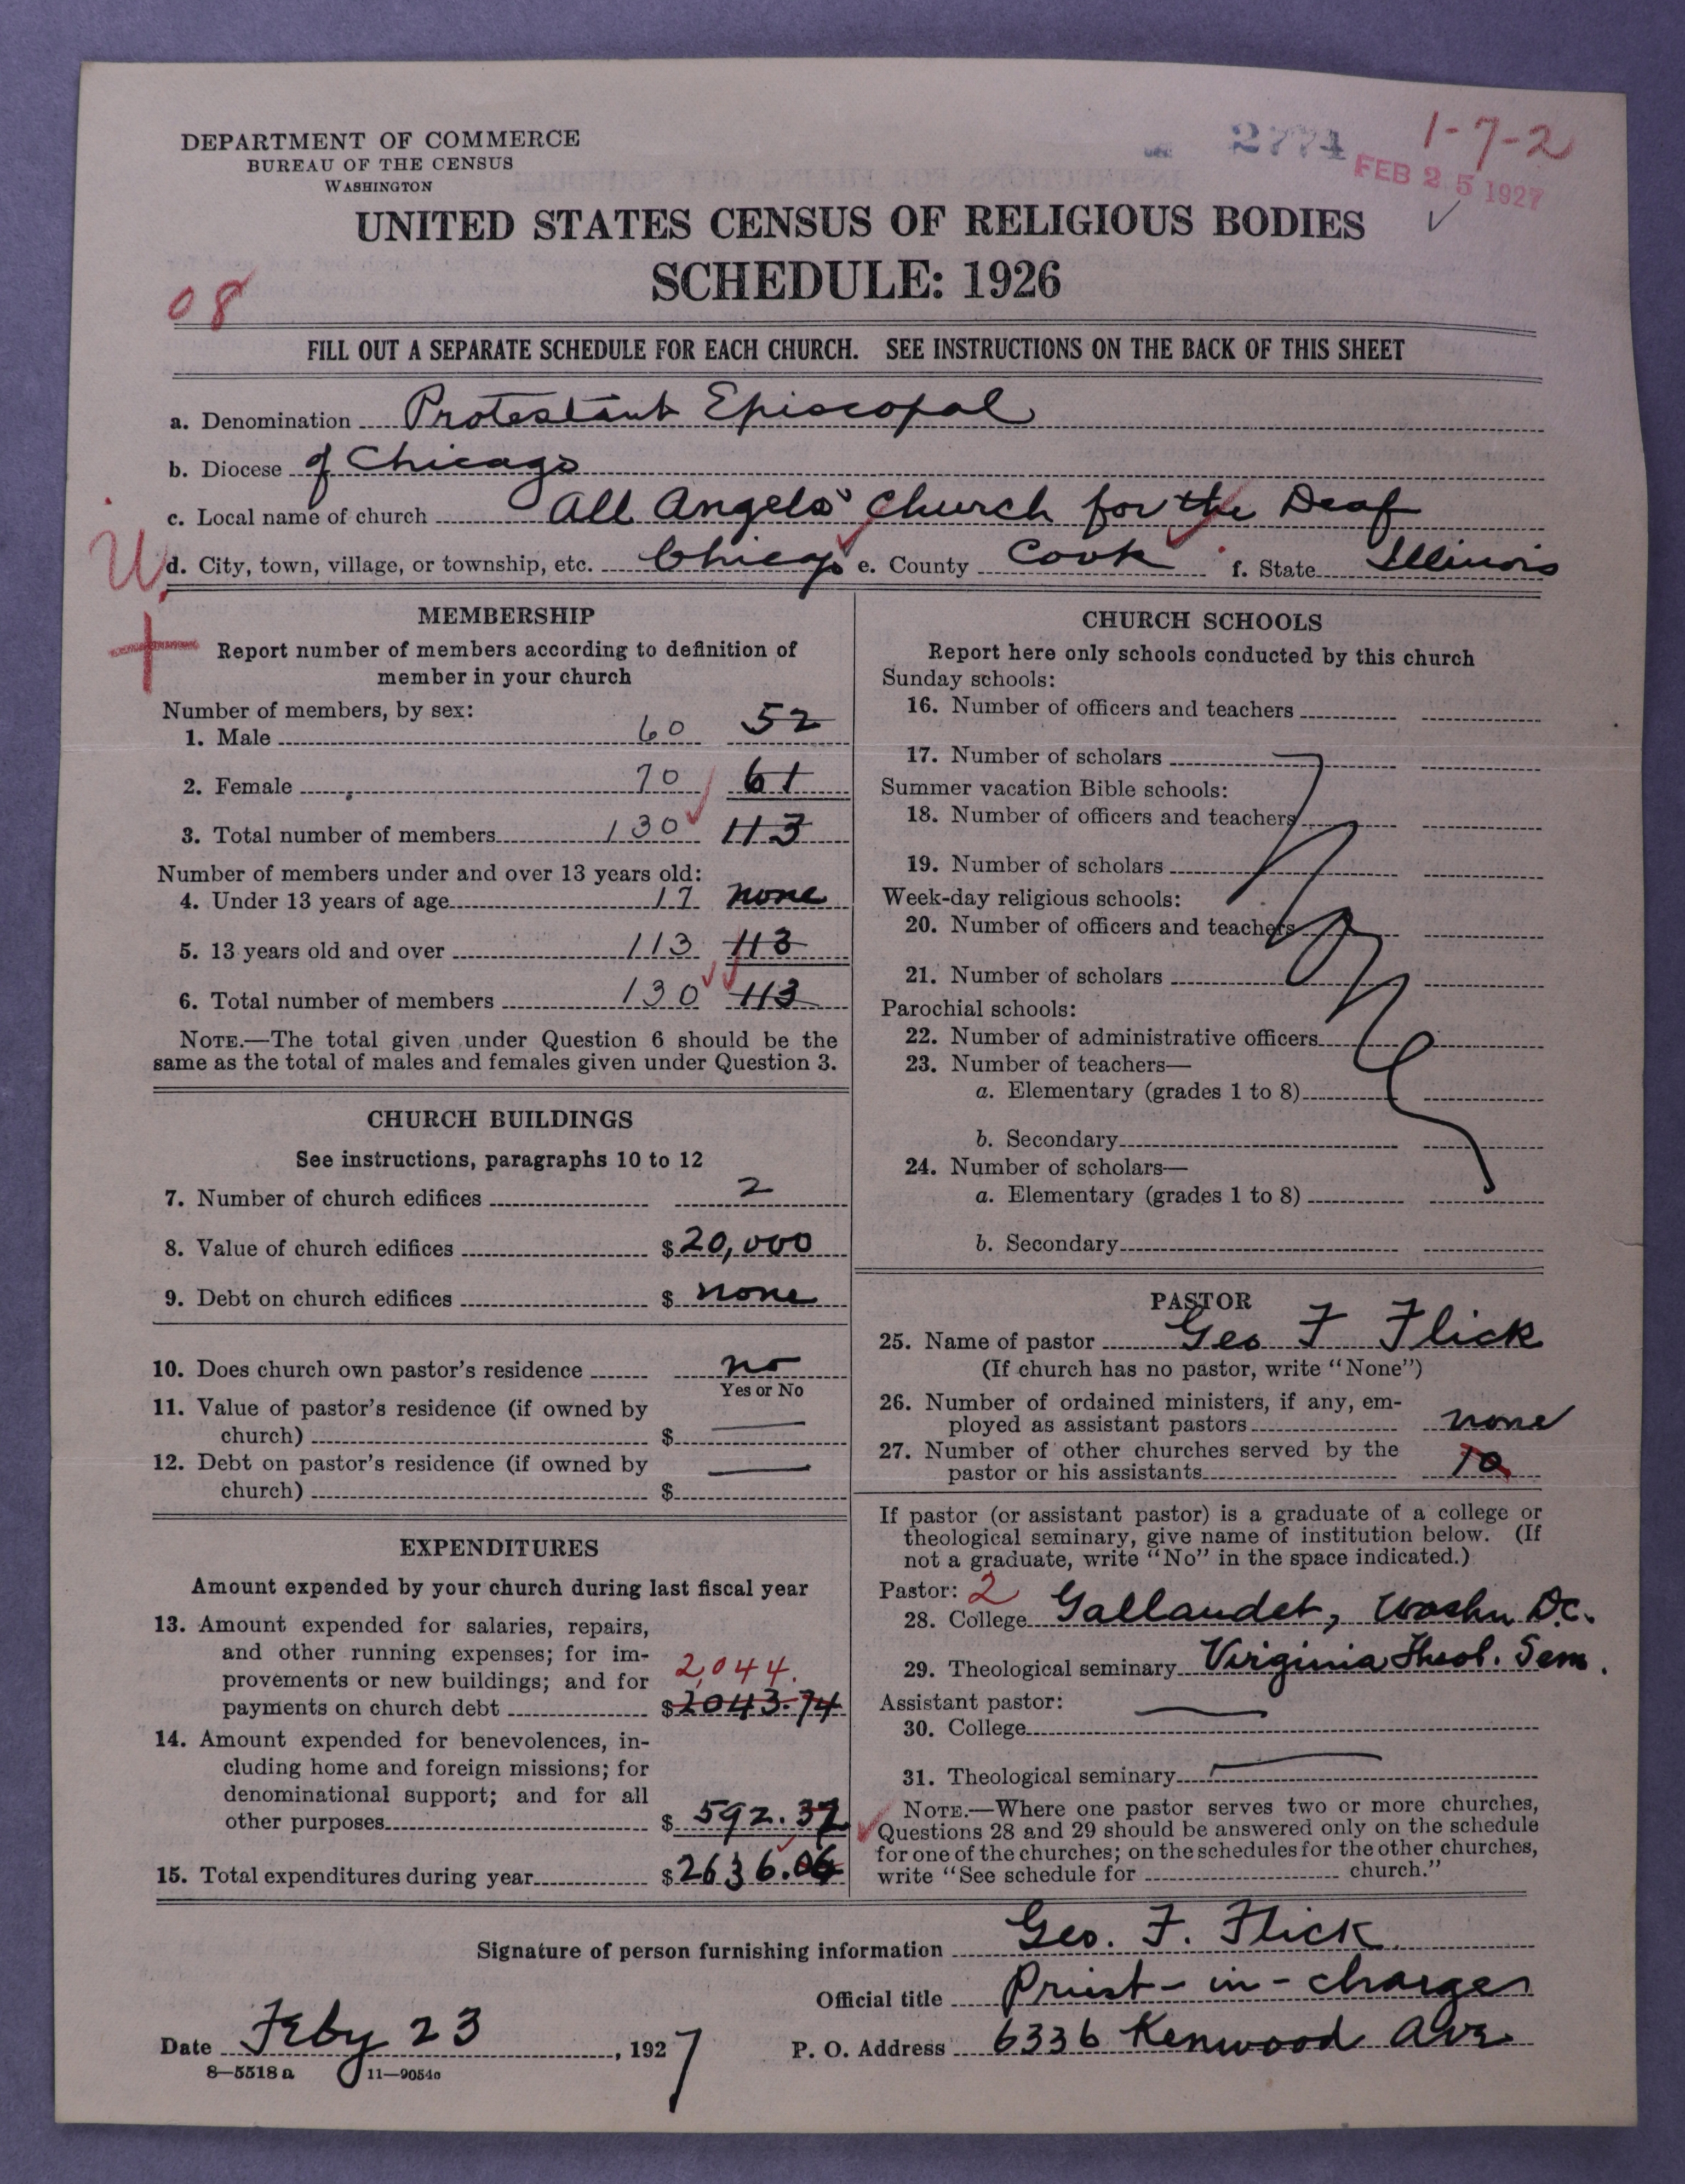 DEPARTMENT OF COMMERCE
BUREAU OF THE CENSUS
WASHINGTON
2774
1-7-2
FEB 25 1927
UNITED STATES CENSUS OF RELIGIOUS BODIES
SCHEDULE: 1926
08
FILL OUT A SEPARATE SCHEDULE FOR EACH CHURCH. SEE INSTRUCTIONS ON THE BACK OF THIS SHEET
a. Denomination Protestant Episcopal
b. Diocese of Chicago
c. Local name of church All Angels' Church for the Deaf
d. City, town, village, or township, etc. Chicago e. County Cook f. State Illinois
MEMBERSHIP
Report number of members according to definition of
member in your church
Number of members, by sex:
1. Male 60 52
2. Female 70 61
3. Total number of members 130 113
Number of members under and over 13 years old:
4. Under 13 years of age 17 none
5. 13 years old and over 113 113
6. Total number of members 130 113
NOTE.—The total given under Question 6 should be the
same as the total of males and females given under Question 3.
CHURCH BUILDINGS
See instructions, paragraphs 10 to 12
7. Number of church edifices 2
8. Value of church edifices $20,000
9. Debt on church edifices $ none
10. Does church own pastor's residence no
Yes or No
11. Value of pastor's residence (if owned by
church) $
12. Debt on pastor's residence (if owned by
church) $
EXPENDITURES
Amount expended by your church during last fiscal year
13. Amount expended for salaries, repairs,
and other running expenses; for im-
provements or new buildings; and for 2,044.
payments on church debt $2043.74
14. Amount expended for benevolences, in-
cluding home and foreign missions; for
denominational support; and for all
other purposes $ 592.32
15. Total expenditures during year $2636.06
CHURCH SCHOOLS
Report here only schools conducted by this church
Sunday schools:
16. Number of officers and teachers
17. Number of scholars
Summer vacation Bible schools:
18. Number of officers and teachers
19. Number of scholars
Week-day religious schools:
20. Number of officers and teachers
21. Number of scholars
Parochial schools:
22. Number of administrative officers
23. Number of teachers—
a. Elementary (grades 1 to 8)
b. Secondary
24. Number of scholars—
a. Elementary (grades 1 to 8)
b. Secondary
None
PASTOR
25. Name of pastor Geo F Flick
(If church has no pastor, write "None")
26. Number of ordained ministers, if any, em-
ployed as assistant pastors none
27. Number of other churches served by the
pastor or his assistants 10
If pastor (or assistant pastor) is a graduate of a college or
theological seminary, give name of institution below. (If
not a graduate, write "No" in the space indicated.)
Pastor: 2
28. College Gallaudet, Washn D.C.
29. Theological seminary Virginia Theol. Sem.
Assistant pastor:
30. College
31. Theological seminary
NOTE.—Where one pastor serves two or more churches,
Questions 28 and 29 should be answered only on the schedule
for one of the churches; on the schedules for the other churches,
write "See schedule for church."
Signature of person furnishing information Geo. F. Flick
Official title Priest-in-charge
Date Feby 23, 1927 P. O. Address 6336 Kenwood Ave
8—5518 a 11—9054a